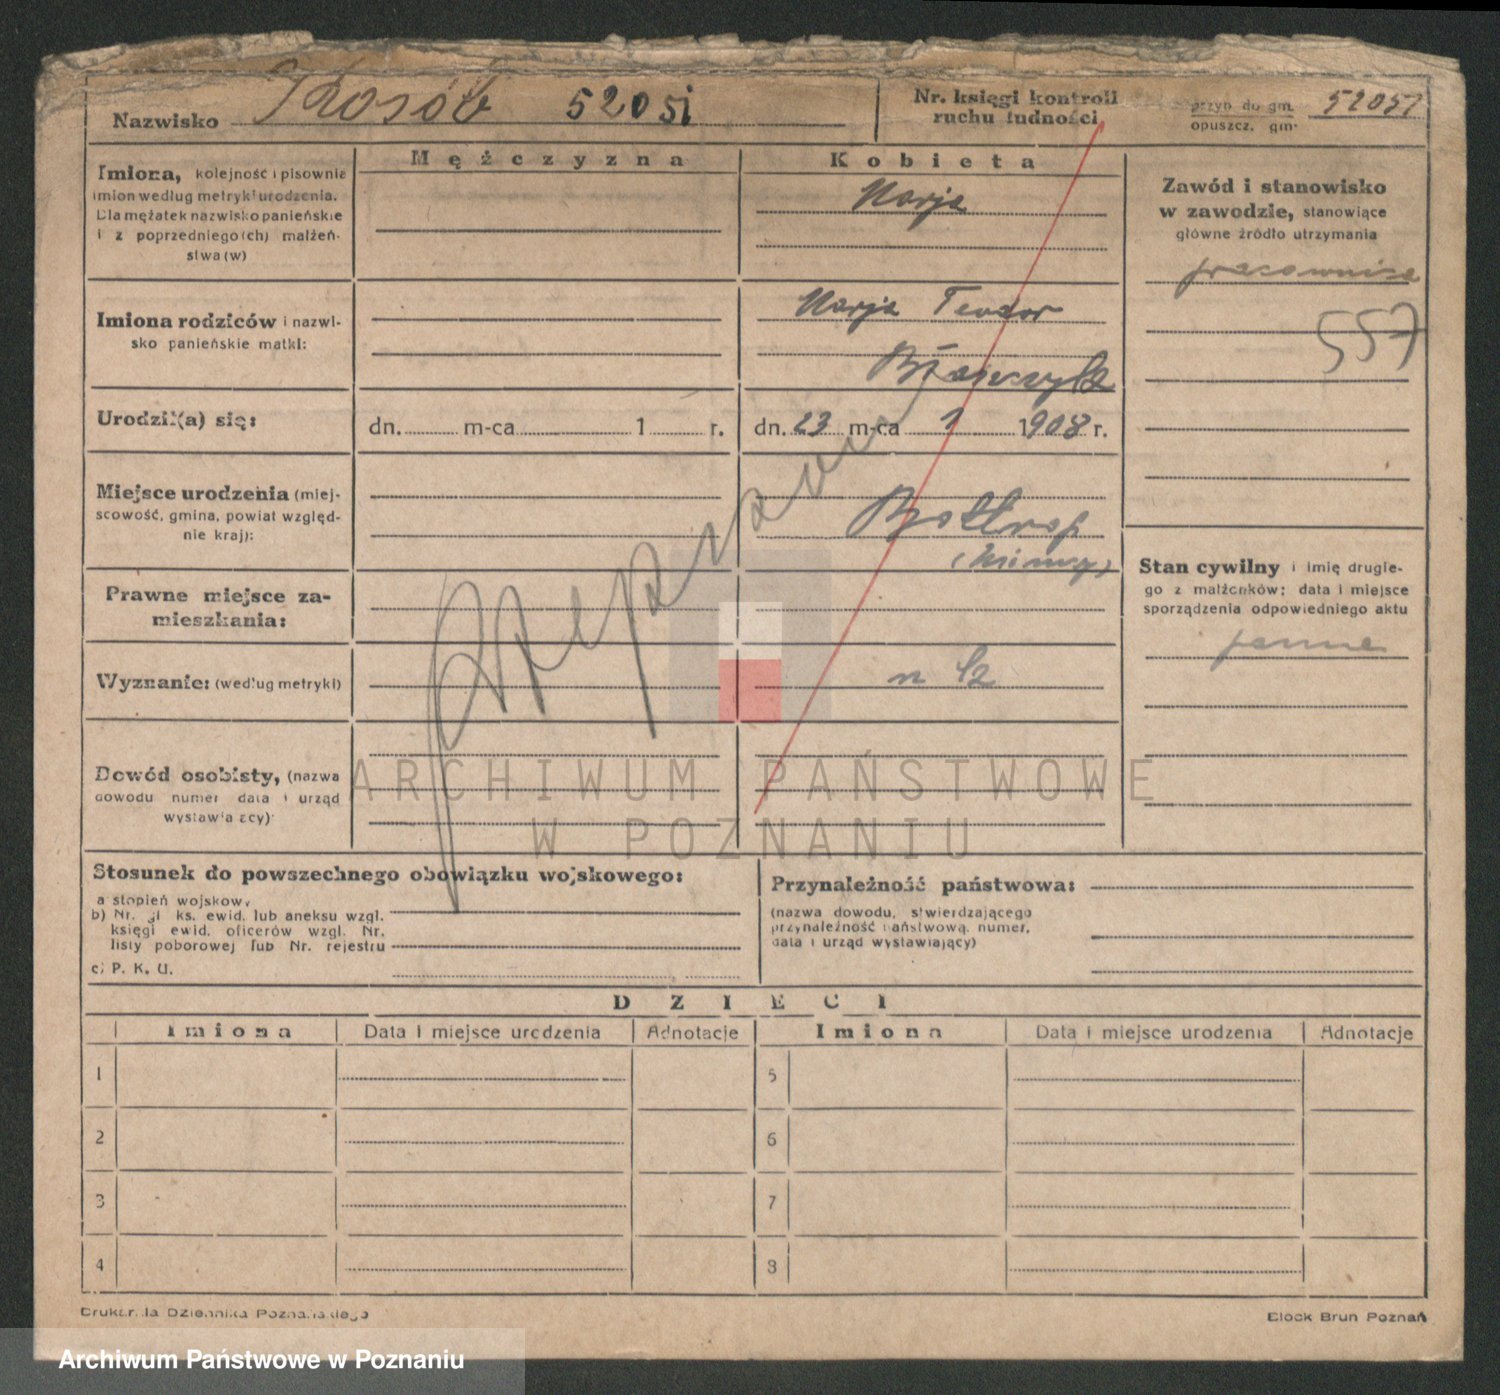 Nazwisko Kosób 52051
Nr. księgi kontroli
ruchu ludności
przyb. do gm. 52051
opuszcz. gm.
Mężczyzna
Kobieta
Imiona, kolejność i pisownia
imion według metryki urodzenia.
Dla mężatek nazwisko panieńskie
i z poprzedniego(ch) małżeń-
stwa(w)
Marja
Zawód i stanowisko
w zawodzie, stanowiące
główne źródło utrzymania
pracownica
557
Imiona rodziców i nazwi-
sko panieńskie matki:
Marja Teodor
Błaszczyk
Urodził(a) się:
dn. m-ca 1 r.
dn. 23 m-ca 1 1908 r.
Miejsce urodzenia (miej-
scowość, gmina, powiat względ-
nie kraj):
Bottrop
(Niemcy)
Prawne miejsce za-
mieszkania:
Stan cywilny i imię drugie-
go z małżonków; data i miejsce
sporządzenia odpowiedniego aktu
panna
Wyznanie: (według metryki)
Dowód osobisty, (nazwa
dowodu numer data i urząd
wystawiający)
ARCHIWUM PAŃSTWOWE
W POZNANIU
Stosunek do powszechnego obowiązku wojskowego:
a stopień wojskowy
b) Nr. gł ks. ewid. lub aneksu wzgl.
księgi ewid. oficerów wzgl. Nr.
listy poborowej lub Nr. rejestru
c) P. K. U.
Przynależność państwowa:
(nazwa dowodu, stwierdzającego
przynależność państwową, numer,
data i urząd wystawiający)
DZIECI
Imiona Data i miejsce urodzenia Adnotacje Imiona Data i miejsce urodzenia Adnotacje
1 5
2 6
3 7
4 8
Drukarnia Dziennika Poznańskiego
Block Brun Poznań
Archiwum Państwowe w Poznaniu